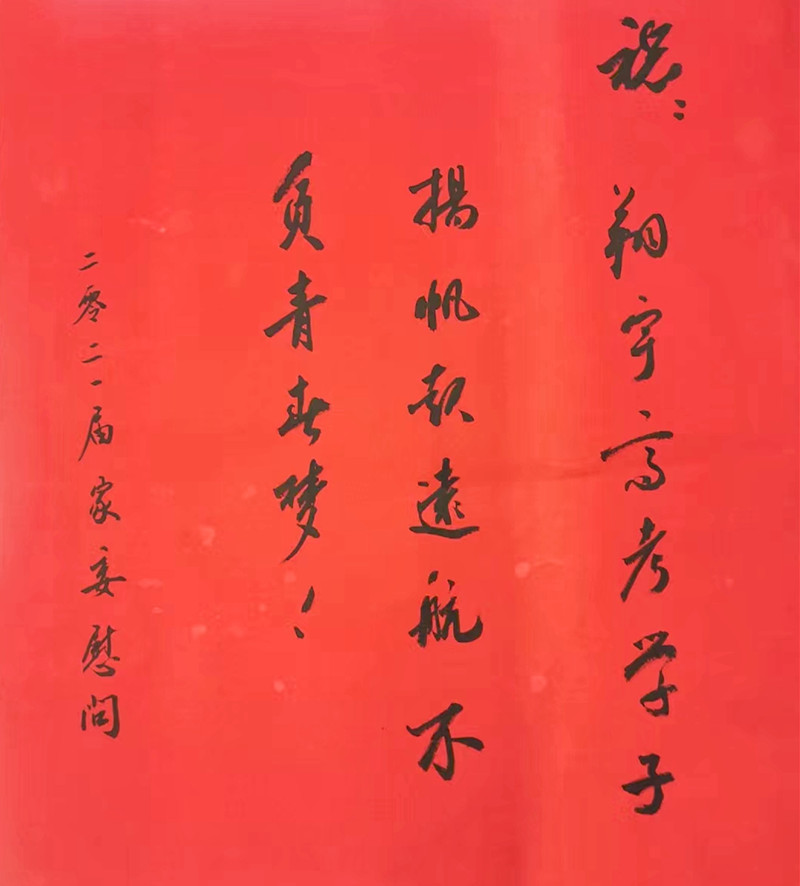 祝：翔宇高考学子
揚帆起遠航不
负青春梦！
二零二一届家委慰问